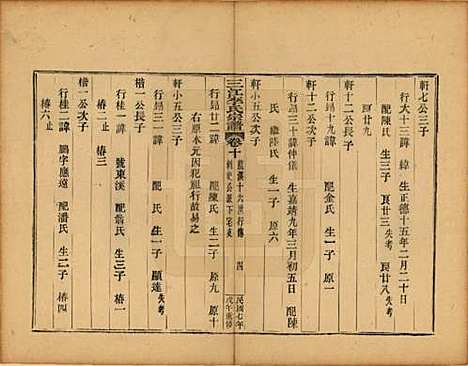 軒七公三子
行大十三諱緯 生正德十五年二月二十日
配陳氏 生三子 良廿三失考 良廿八
良廿九
軒十二公長子
行錫十九諱 配金氏 生一子
行錫三十諱仲儀 生嘉靖九年三月初五日 配陳
氏 繼陸氏 生一子 原六
軒小五公次子
三江李氏宗譜 卷十 民國七年
行錫廿二諱 配陳氏 生二子 原九 原十
右原本元因犯祖行故易之
軒小五公三子
行錫三一諱 配氏 生一子 顯達失考
楷一公長子
行桂一諱 號東溪 配翁氏 生三子 椿一
椿二止 椿三
楷一公次子
行桂二諱 鵬字應遠 配潘氏 生二子 椿四
椿六止